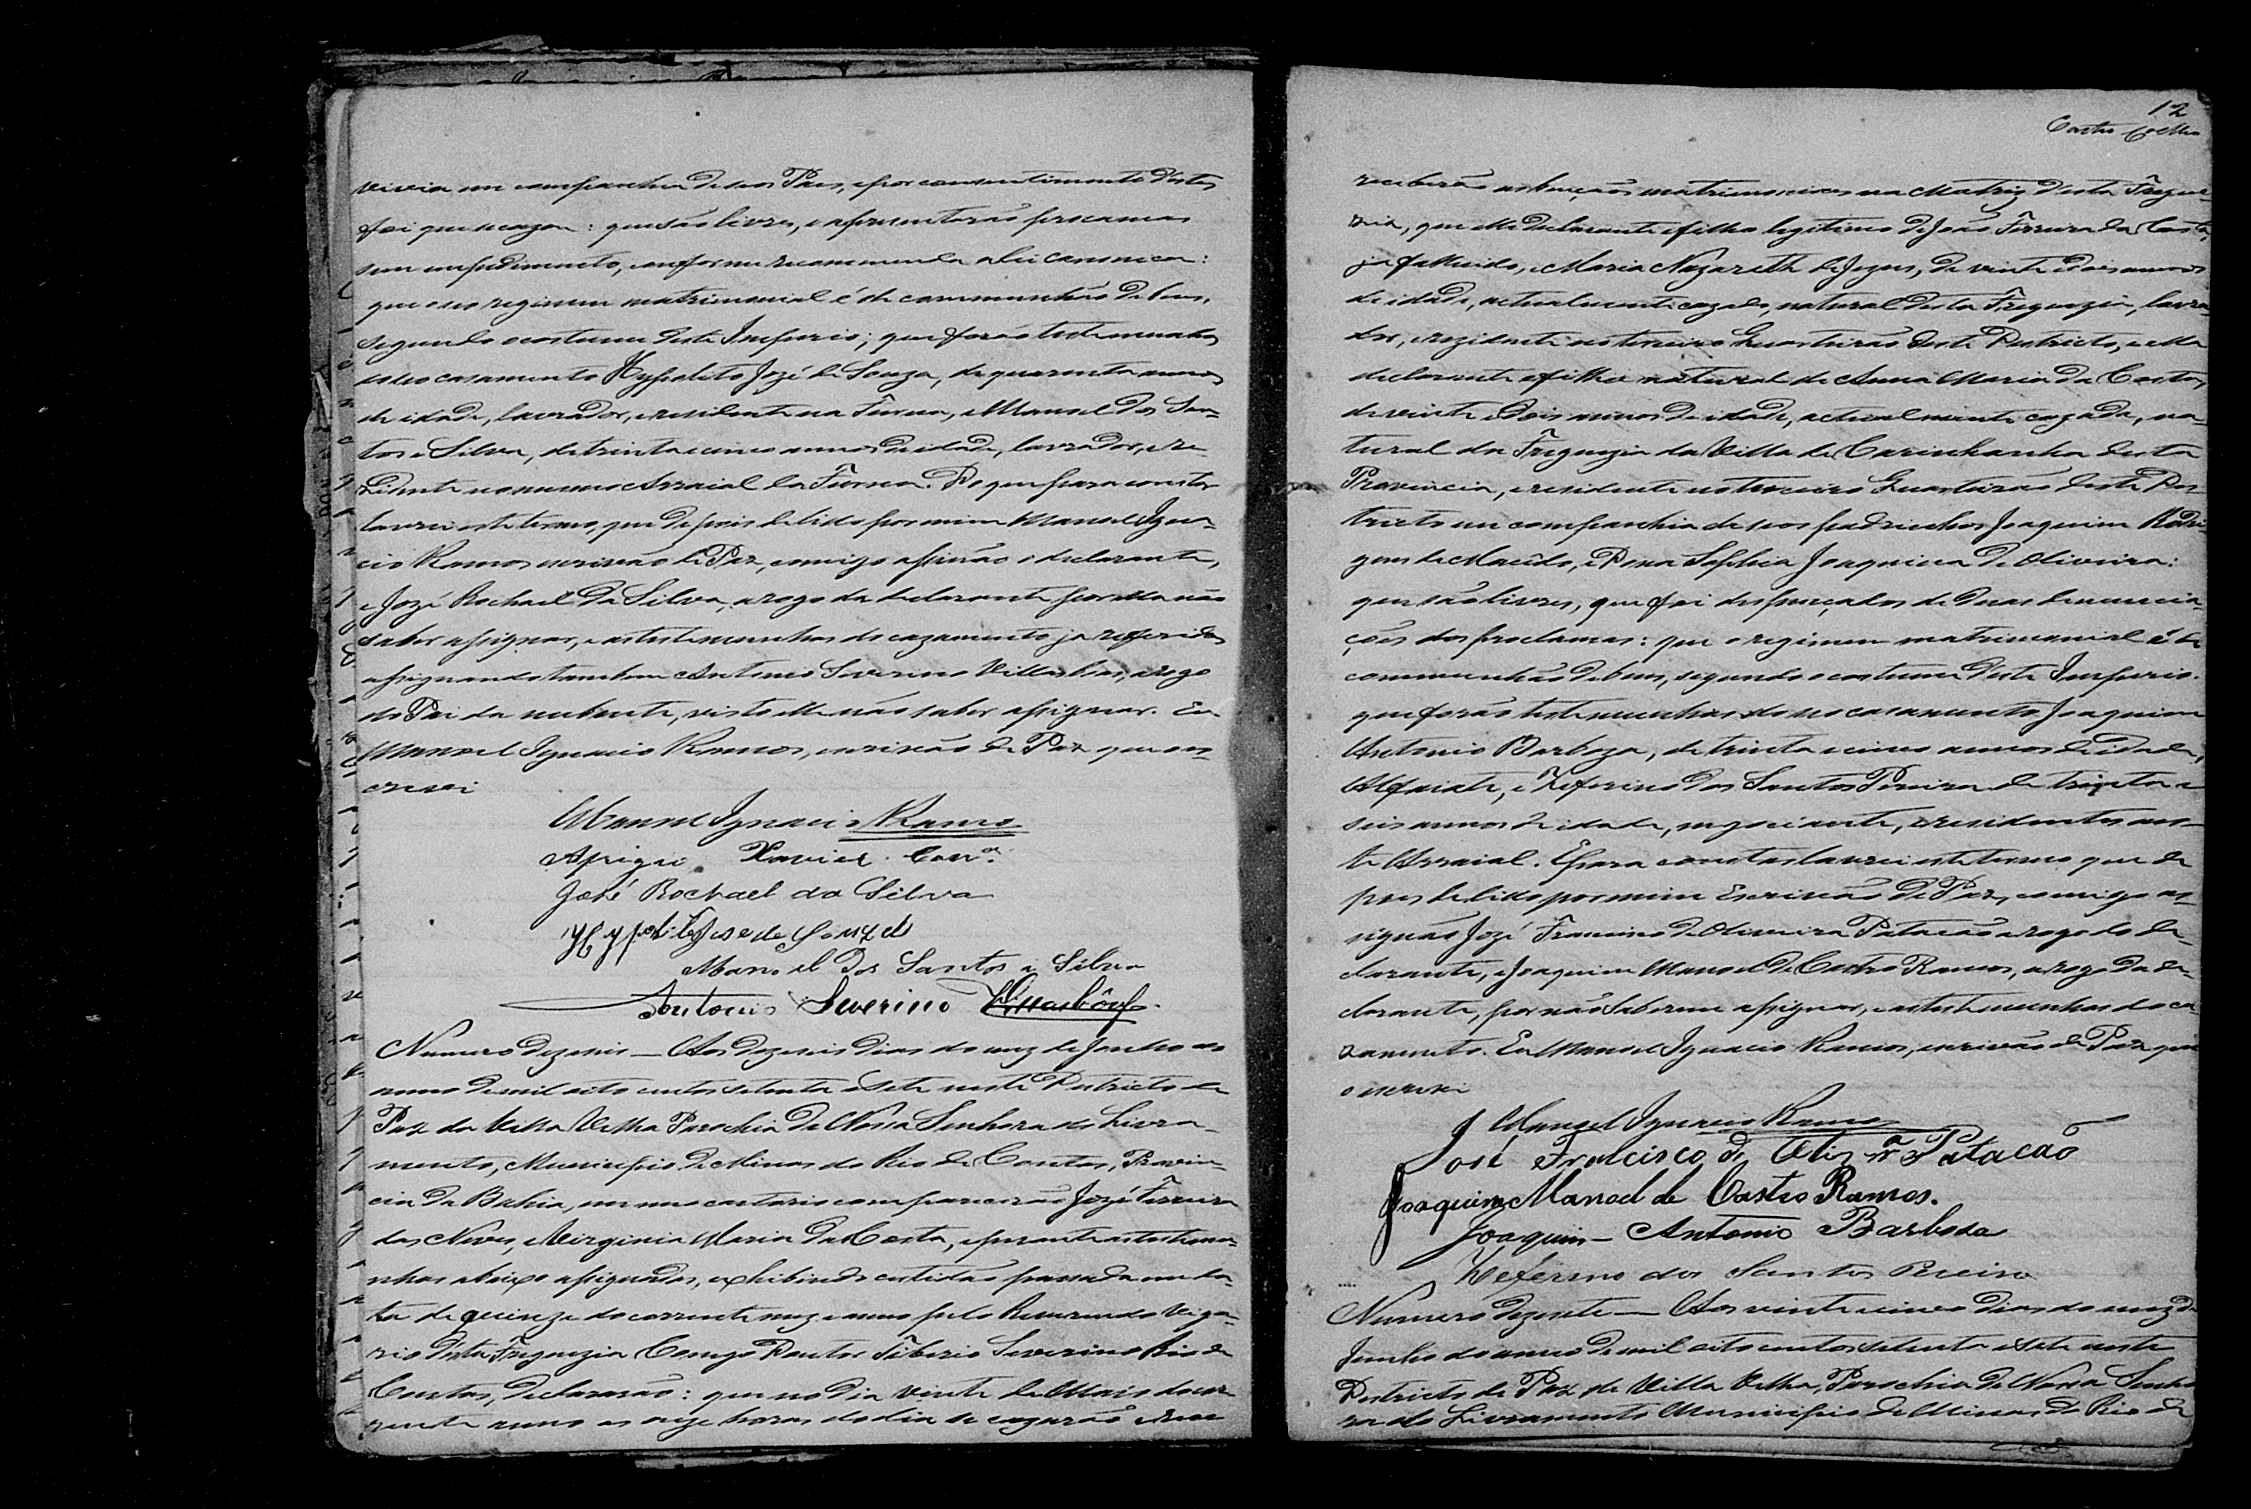 vivia em companhia de seos Paes, e por consentimento destes
foi que se cazou: que são livres, e apresentarão proclamas
sem impedimento, conforme recommenda a lei canonica:
que o seo regimem matrimonial é de communhão de bens,
segundo o costume deste Imperio; que forão testemunhas
do seo casamento Hypolito Jozé de Souza, de quarenta annos
de idade, lavrador, e residente na Furna, e Manoel dos San-
tos e Silva, de trinta e cinco annos de idade, lavrador, e re-
zidente no mesmo Arraial da Furna. Do que para constar
lavrei este termo, que depois de lido por mim Manoel Igna-
cio Ramos escrivão de Paz, comigo assinão o declarante,
e Jozé Rochael da Silva, a rogo da declarante por ella não
saber assignar, e as testemunhas do cazamento ja referidas
assignando tambem Antonio Severino Villasbôas, a rogo
do Pai da nubente, visto elle não saber assignar. Eu
Manoel Ignacio Ramos, escrivão de Paz que es-
crevi
Manoel Ignacio Ramos
Aprigio Xavier
José Rochael da Silva
Hypolito Jose de Souza
Manoel dos Santos e Silva
Antonio Severino Villasbôas
Numero dezeseis — Aos dezeseis dias do mez de Junho do
anno de mil oito centos setenta e sete neste Destricto de
Paz da Villa Velha Parochia de Nossa Senhora do Livra-
mento, Municipio de Minas do Rio de Contas, Provin-
cia da Bahia, em meo cartorio comparecerão Jozé Ferreira
das Neves, e Virginia Maria da Costa, e perante as testemu-
nhas abaixo assignadas, exhibindo certidão passada em da-
ta de quinze do corrente mez e anno pelo Reverendo Viga-
rio desta Freguezia Conego Doutor Tiberio Severino Rio de
Contas, declararão: que no dia vinte de Maio do cor-
rente anno as onze horas do dia se cazarão e rece
12
Castro Coelho
receberão as bençãos matrimoniaes na Matriz desta Fregue-
zia, que elle declarante é filho legitimo de João Ferreira da Costa,
ja fallecido, e Maria Nazareth de Jezus, de vinte e dois annos
de idade, actualmente cazado, natural desta Freguezia, lavra-
dor, e rezidente no terceiro Quarteirão deste Destricto, e ella
declarante é filha natural de Anna Maria da Costa,
de vinte e dois annos de idade, actualmente cazada, na-
tural da Freguezia da Villa de Carinhanha desta
Provincia, e residente no terceiro Quarteirão deste Des-
tricto em companhia de seos padrinhos Joaquim Rodri-
gues de Macêdo, e Dona Sophia Joaquina de Oliveira:
que são livres, que foi dispençados de duas denuncia-
ções dos proclamas: que o regimem matrimonial é de
communhão de bens, segundo o costume deste Imperio.
que forão testemunhas do seo casamento Joaquim
Antonio Barboza, de trinta e cinco annos de idade,
Alfaiate, e Zeferino dos Santos Pereira de trinta e
seis annos de idade, negociante, e residentes nes-
te Arraial. E para constar lavrei este termo que de
pois de lido por mim Escrivão de Paz, comigo as-
signão Jozé Francisco de Oliveira Patacão a rogo do de-
clarante, e Joaquim Manoel de Castro Ramos, a rogo da de-
clarante, por não saberem assignar, e as testemunhas do ca-
zamento. Eu Manoel Ignacio Ramos, escrivão de Paz que
o escrevi
Manoel Ignacio Ramos
José Francisco de Olivrª Patacão
Joaquim Manoel de Castro Ramos.
Joaquim Antonio Barboda
Zeferino dos Santos Pereira
Numero dezesete — Aos vinte e cinco dias do mez de
Junho do anno de mil oito centos setenta e sete neste
Destricto de Paz da Villa Velha, Parochia de Nossa Senho-
ra do Livramento Municipio de Minas do Rio de